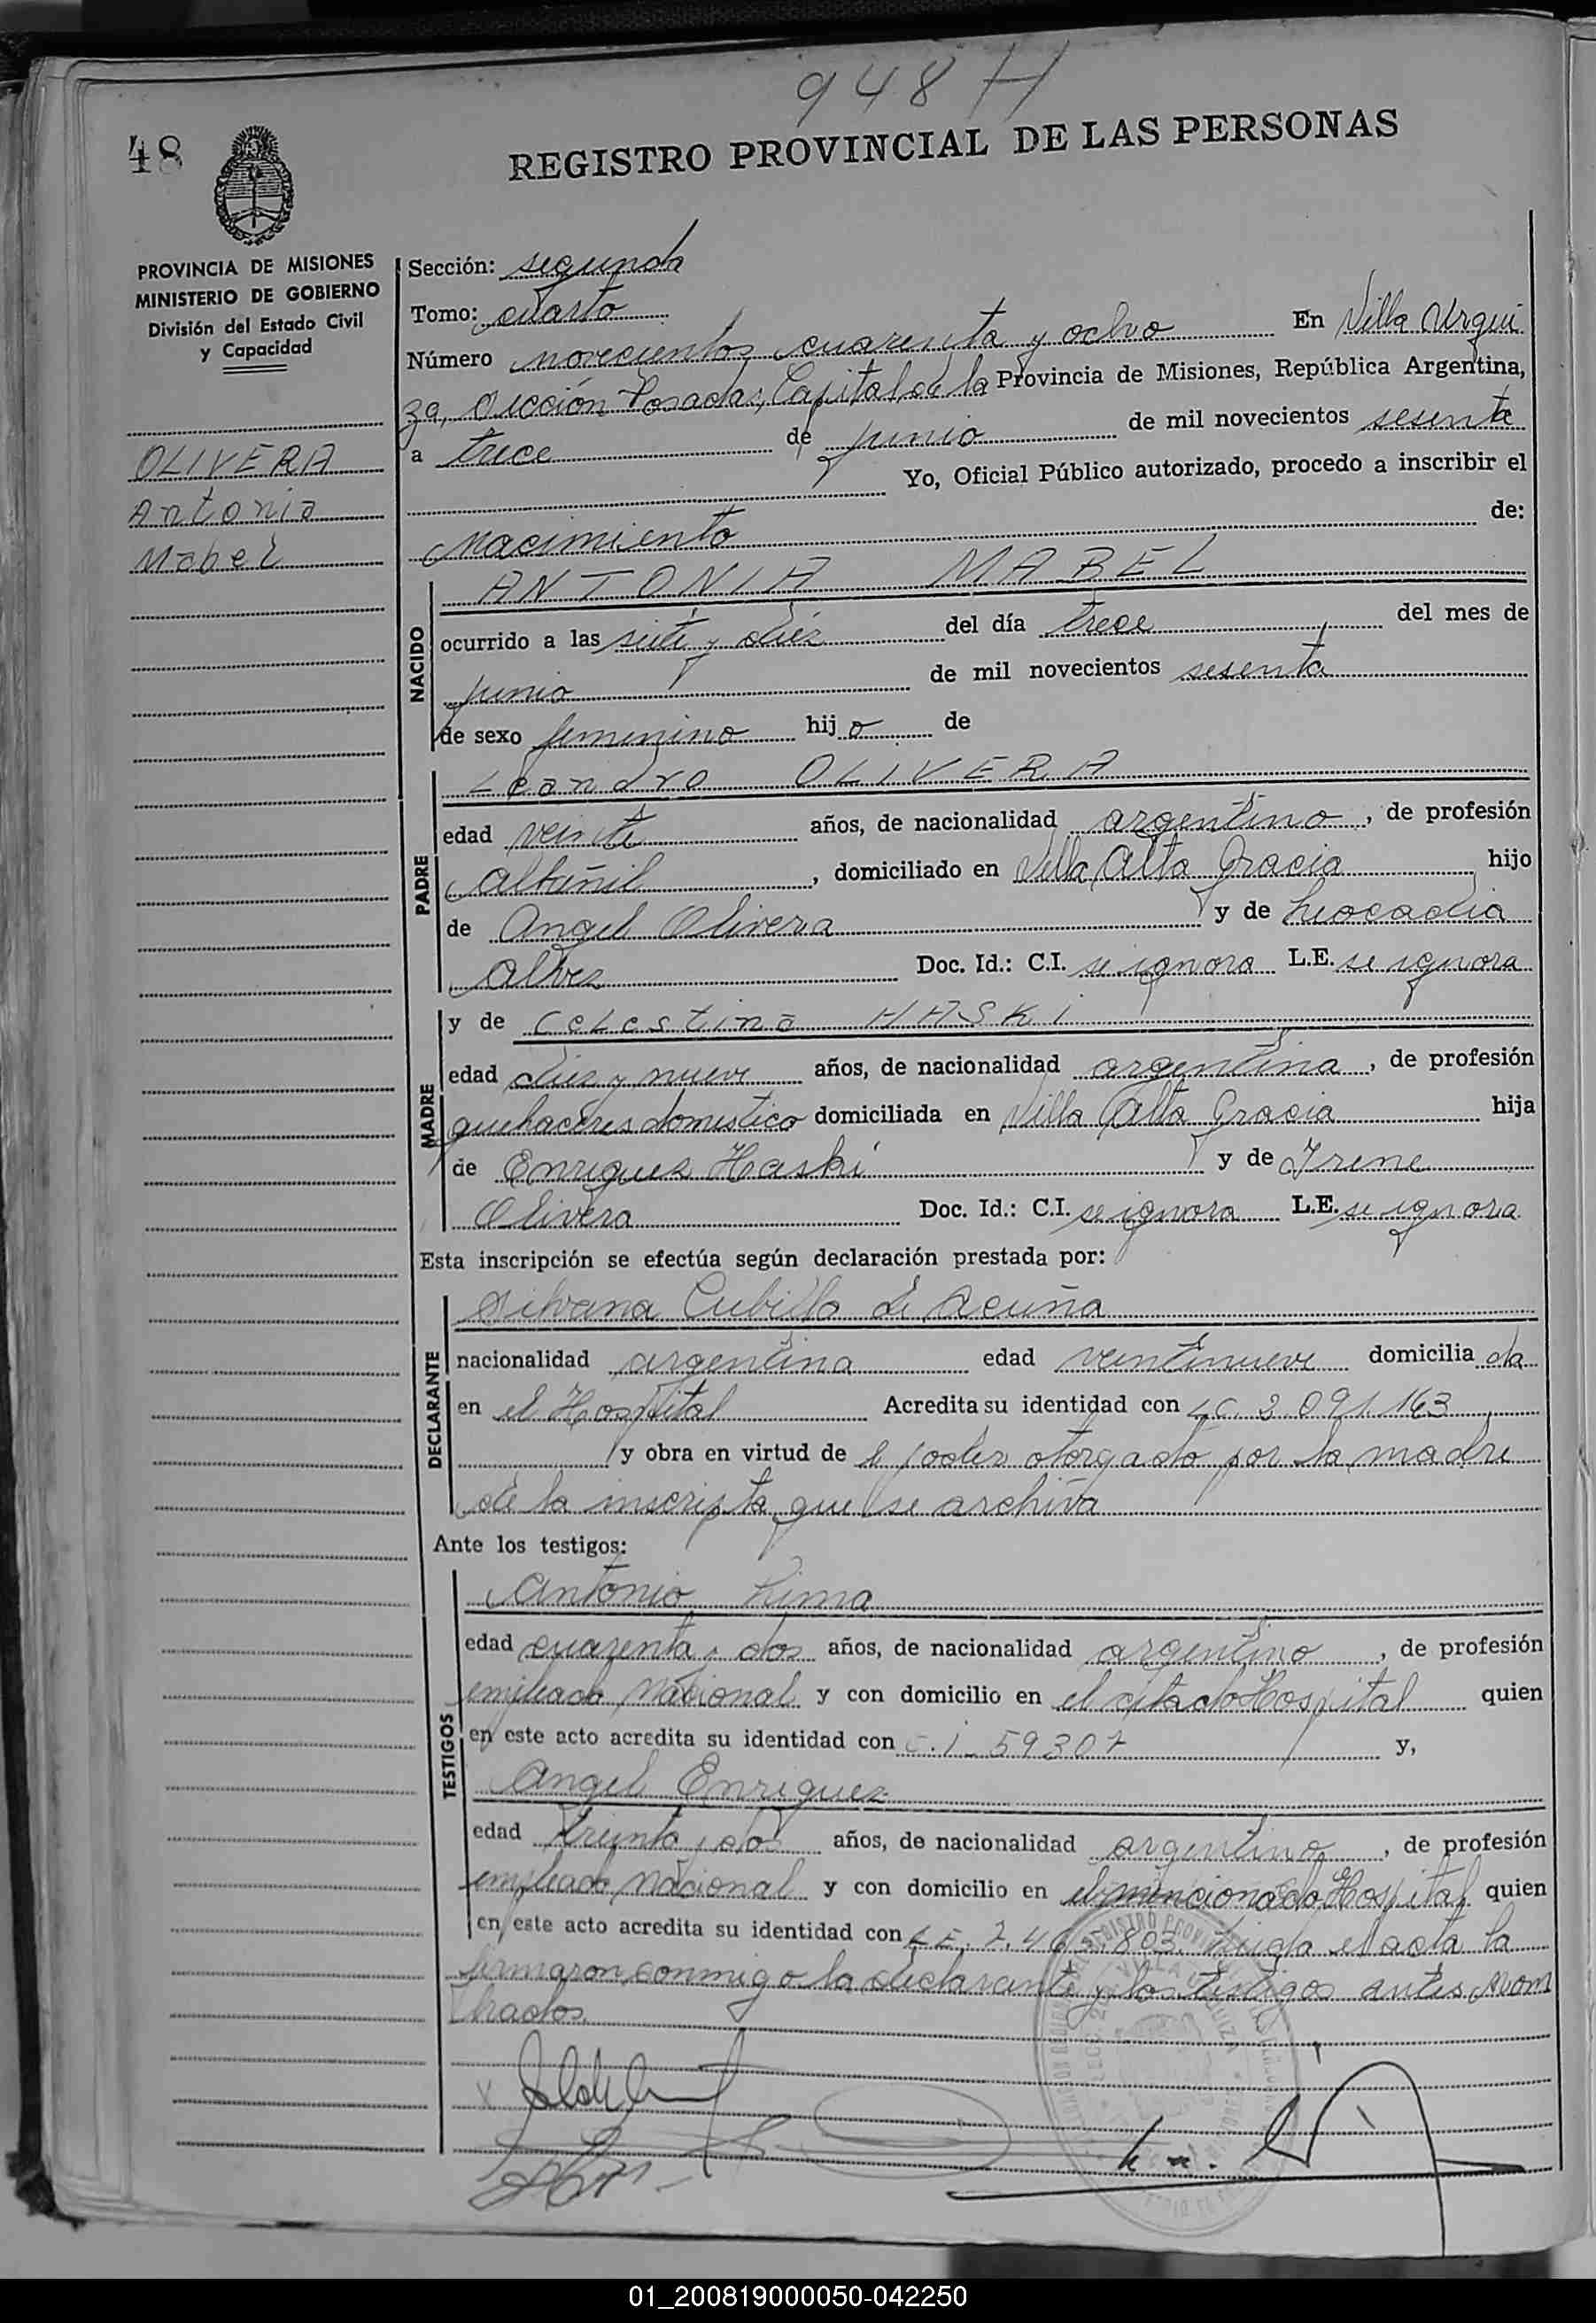 948 H
48
REGISTRO PROVINCIAL DE LAS PERSONAS
PROVINCIA DE MISIONES
MINISTERIO DE GOBIERNO
División del Estado Civil
y Capacidad
OLIVERA
Antonia
Mabel
Sección: segunda
Tomo: cuarto
Número novecientos cuarenta y ocho En Villa Urqui
za, Sección Posadas, Capital de la Provincia de Misiones, República Argentina,
a trece de junio de mil novecientos sesenta
Yo, Oficial Público autorizado, procedo a inscribir el
nacimiento de:
NACIDO
ANTONIA MABEL
ocurrido a las siete y diez del día trece del mes de
junio de mil novecientos sesenta
de sexo femenino hijo de
PADRE
Leandro OLIVERA
edad veinte años, de nacionalidad argentino, de profesión
albañil, domiciliado en Villa Alta Gracia hijo
de Angel Olivera y de Leocadia
Alvez Doc. Id.: C.I. se ignora L.E. se ignora
MADRE
y de Celestina HASKI
edad diez y nueve años, de nacionalidad argentina, de profesión
quehaceres domestico domiciliada en Villa Alta Gracia hija
de Enriquez Haski y de Irene
Olivera Doc. Id.: C.I. se ignora L.E. se ignora
Esta inscripción se efectúa según declaración prestada por:
DECLARANTE
Silvana Cubilla de Acuña
nacionalidad argentina edad veintinueve domiciliada
en el Hospital Acredita su identidad con LC. 3.091.163
y obra en virtud de el poder otorgado por la madre
de la inscripta que se archiva
Ante los testigos:
TESTIGOS
Antonio Lima
edad cuarenta y dos años, de nacionalidad argentino, de profesión
empleado nacional y con domicilio en el citado Hospital quien
en este acto acredita su identidad con C.i. 59307 y,
Angel Enriquez
edad treinta y dos años, de nacionalidad argentino, de profesión
empleado nacional y con domicilio en el mencionado Hospital quien
en este acto acredita su identidad con L.E. 803. el acta la
firmaron conmigo la declarante y los testigos antes nom
brados.
01_200819000050-042250